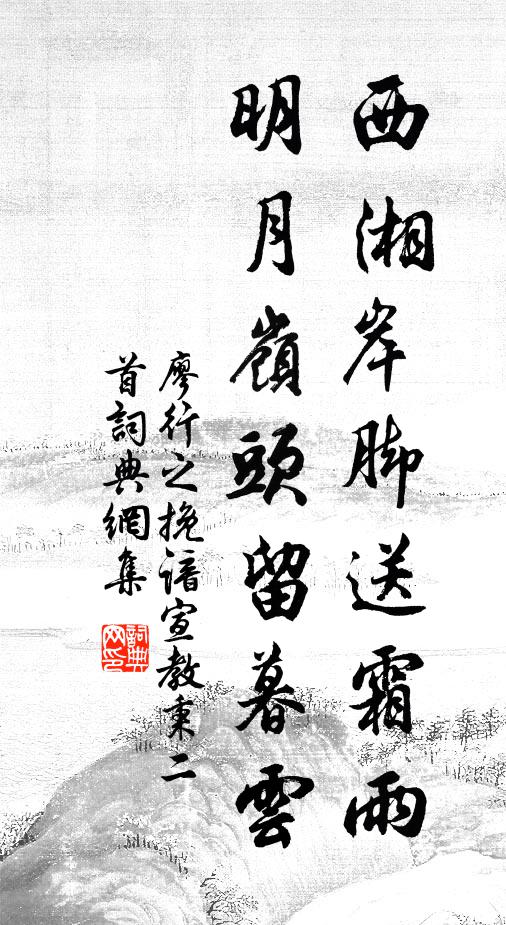 西湘岸脚送霜雨
明月嶺頭留暮雲
廖行之挽譜宣教秉二
首詞典網集
詞典
网印